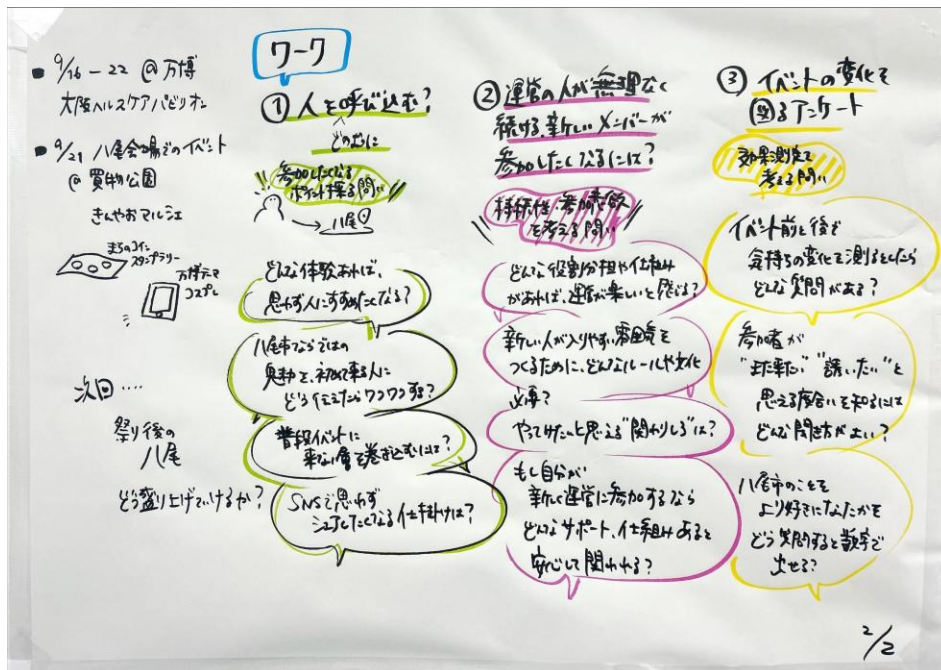 9/16-22 @万博
大阪ヘルスケアパビリオン
9/21 八尾会場でのイベント
@買物公園
きんやおマルシェ
まちのコイン
スタンプラリー
万博テーマ
コスプレ
次回‥‥
祭り後の
八尾
どう盛り上げていけるか?
ワーク
① 人を呼び込む?
どのように
参加したくなる
ポイント探る問い
八尾
どんな体験あれば、
思わず人にすすめたくなる?
八尾市ならではの
魅力を、初めて来る人に
どう伝えたらワクワクする?
普段イベントに
来ない層を巻き込むには?
SNSで思わず
シェアしたくなる仕掛けは?
② 運営の人が無理なく
続ける、新しいメンバーが
参加したくなるには?
持続性・参加意欲
を考える問い
どんな役割分担や仕組み
があれば、運営が楽しいと感じる?
新しい人が入りやすい雰囲気を
つくるために、どんなルールや文化
必要?
やってみたいと思える"関わりしろ"は?
もし自分が
新しく運営に参加するなら
どんなサポート、仕組みあると
安心して関われる?
③ イベントの変化を
図るアンケート
効果測定を
考える問い
イベント前と後で
気持ちの変化を測るとしたら
どんな質問がある?
参加者が
"また来たい" "誘いたい"と
思える度合いを知るには
どんな聞き方がよい?
八尾市のことを
より好きになったかを
どう質問すると数字で
出せる?
2/2